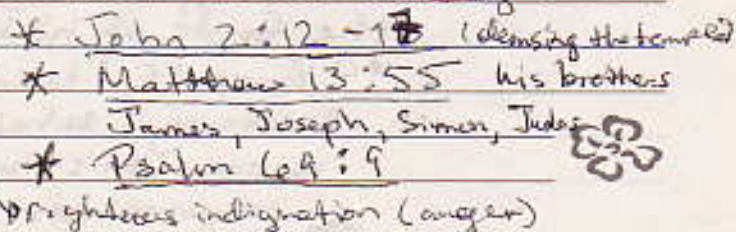 * John 2:12 - 17 (clensing the temple)
* Matthew 13:55 his brothers
James, Joseph, Simon, Judas
* Psalm 69:9
righteous indignation (anger)